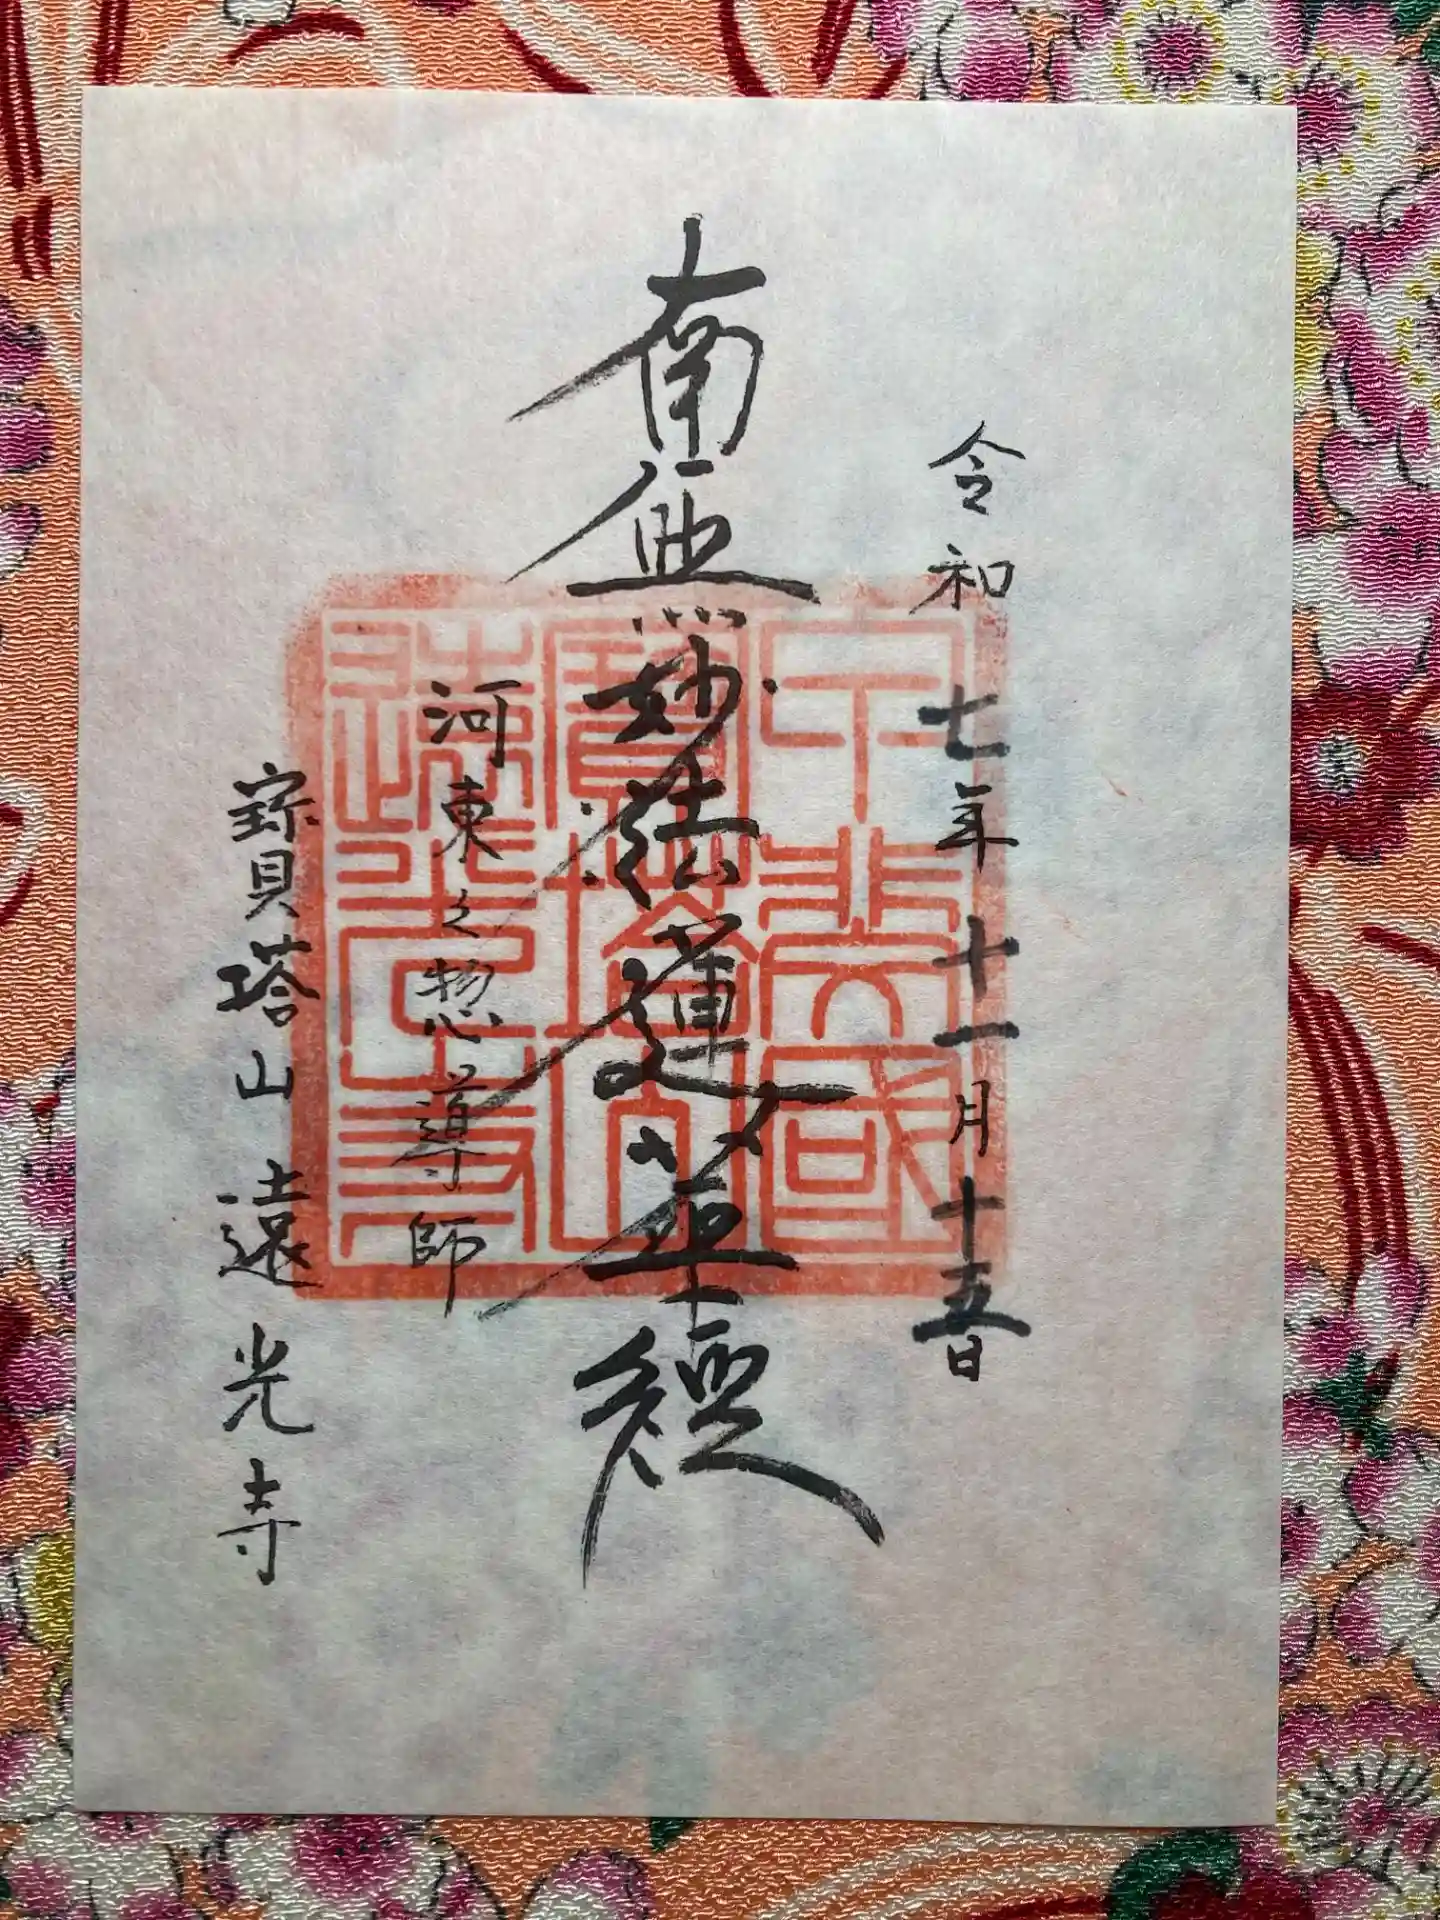 令和七年十一月十五日
南無妙法蓮華経
河東之惣導師
寳塔山遠光寺
甲斐國
寶塔山
遠光寺